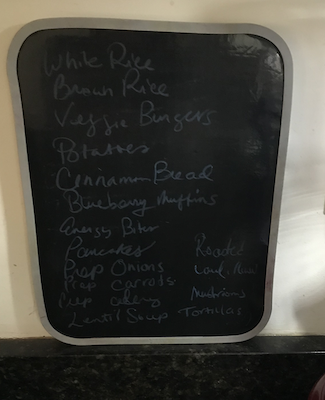 White Rice
Brown Rice
Veggie Burgers
Potatoes
Cinnamon Bread
Blueberry Muffins
Energy Bites
Pancakes
Prep Onions
Prep Carrots
Prep celery
Lentil Soup
Roasted
Mushrooms
Tortillas